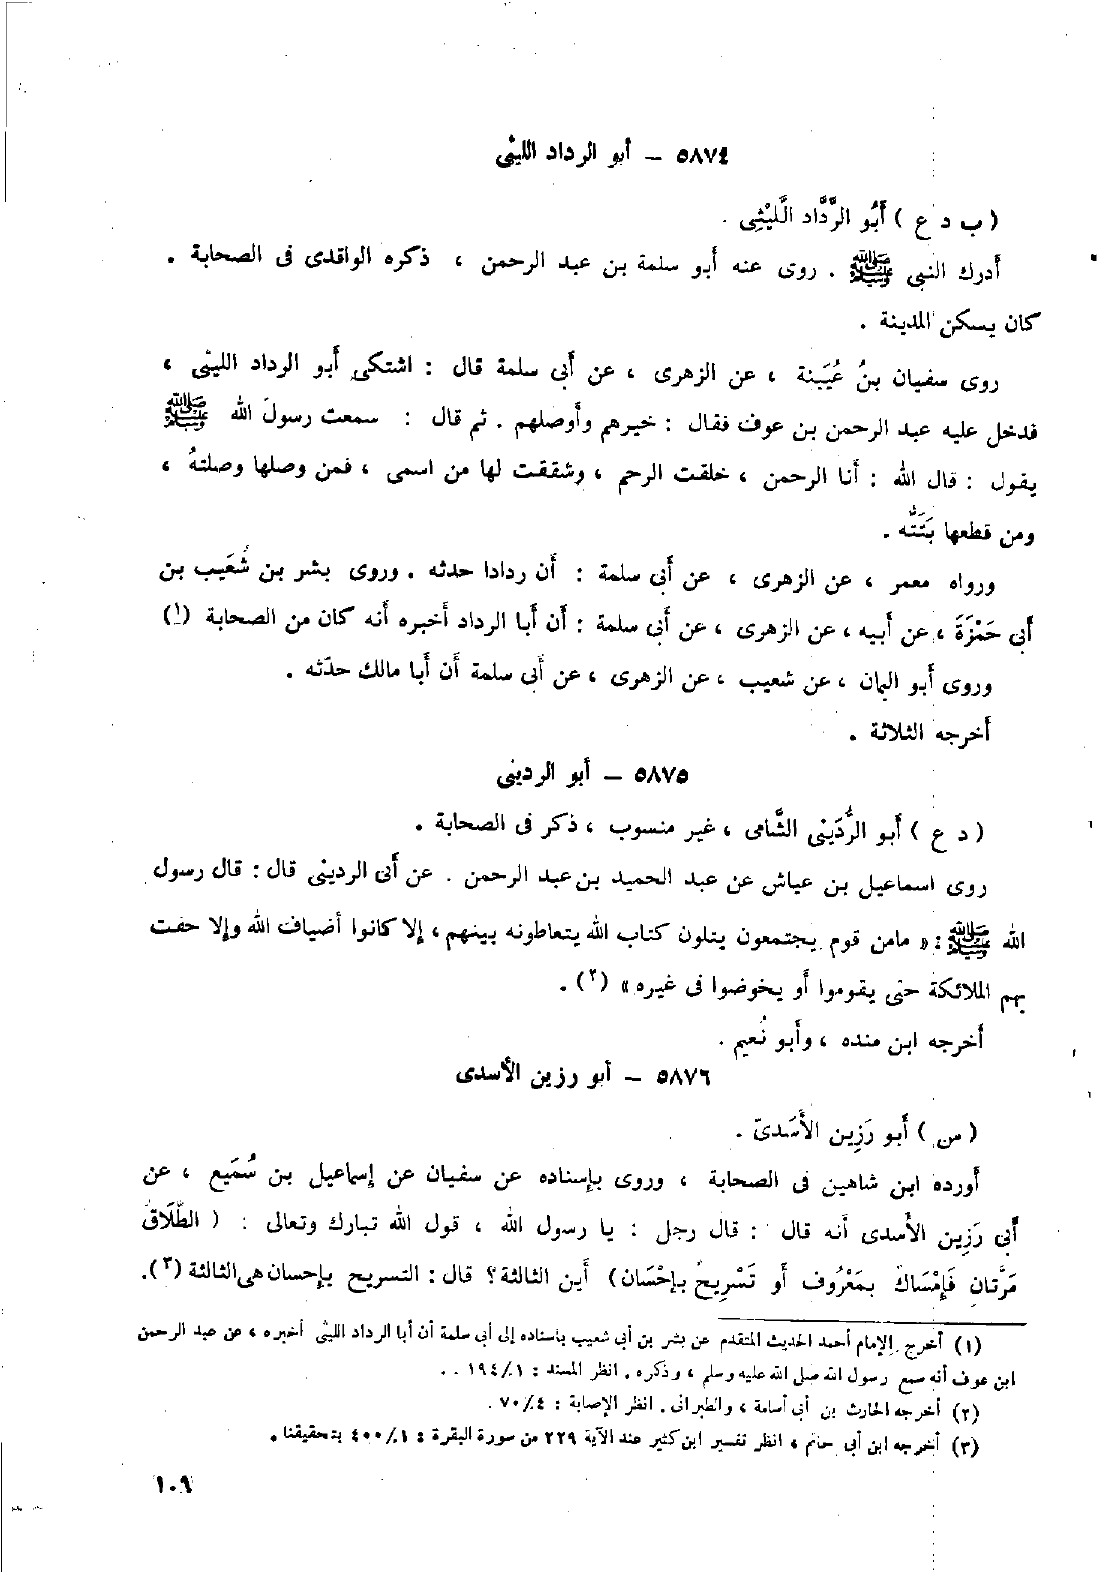 ٥٨٧٤ – أبو الرداد الليثى
( ب د ع ) أَبُو الرَّدَّاد الَّليْثِى .
أدرك النبى ﷺ . روى عنه أبو سلمة بن عبد الرحمن ، ذكره الواقدى فى الصحابة .
كان يسكن المدينة .
روى سفيان بنُ عُيَينة ، عن الزهرى ، عن أبى سلمة قال : اشتكى أبو الرداد الليثى ،
فدخل عليه عبد الرحمن بن عوف فقال : خيرهم وأوصلهم . ثم قال : سمعت رسولَ الله ﷺ
يقول : قال الله : أنا الرحمن ، خلقت الرحم ، وشققت لها من اسمى ، فمن وصلها وصلتهُ ،
ومن قطعها بَتَتُّه .
ورواه معمر ، عن الزهرى ، عن أبى سلمة : أن ردادا حدثه . وروى بشر بن شُعَيب بن
أبى حَمْزَةَ ، عن أبيه ، عن الزهرى ، عن أبى سلمة : أن أبا الرداد أخبره أنه كان من الصحابة (١)
وروى أبو اليمان ، عن شعيب ، عن الزهرى ، عن أبى سلمة أن أبا مالك حدّثه .
أخرجه الثلاثة .
٥٨٧٥ – أبو الردينى
( د ع ) أبو الرُّدَينى الشَّامى ، غير منسوب ، ذكر فى الصحابة .
روى اسماعيل بن عياش عن عبد الحميد بن عبد الرحمن . عن أبى الردينى قال : قال رسول
الله ﷺ : « مامن قوم يجتمعون يتلون كتاب الله يتعاطونه بينهم ، إلا كانوا أضياف الله وإلا حفت
بهم الملائكة حتى يقوموا أو يخوضوا فى غيره » (٢) .
أخرجه ابن منده ، وأبو نُعيم .
٥٨٧٦ – أبو رزين الأسدى
( س ) أبو رَزِين الأَسَدىّ .
أورده ابن شاهين فى الصحابة ، وروى بإسناده عن سفيان عن إسماعيل بن سُمَيع ، عن
أبى رَزِين الأسدى أنه قال : قال رجل : يا رسول الله ، قول الله تبارك وتعالى : ( الطَّلَاقُ
مَرَّتانِ فَإِمْسَاكٌ بِمَعْرُوف أو تَسْرِيحٌ بإحْسَان) أين الثالثة؟ قال : التسريح بإحسان هى الثالثة (٣).
(١) أخرج الإمام أحمد الحديث المتقدم عن بشر بن أبى شعيب بأسناده إلى أبى سلمة أن أبا الرداد الليثى أخبره ، عن عبد الرحمن
ابن عوف أنه سمع رسول الله صلى الله عليه وسلم ، وذكره . انظر المسند : ١/١٩٤ . .
(٢) أخرجه الحارث بن أبى أسامة ، والطبرانى . انظر الإصابة : ٤/٧٠ .
(٣) أخرجه ابن أبى حاتم ، انظر تفسير ابن كثير عند الآية ٢٢٩ من سورة البقرة : ١/٤٠٠ بتحقيقنا .
١٠٩